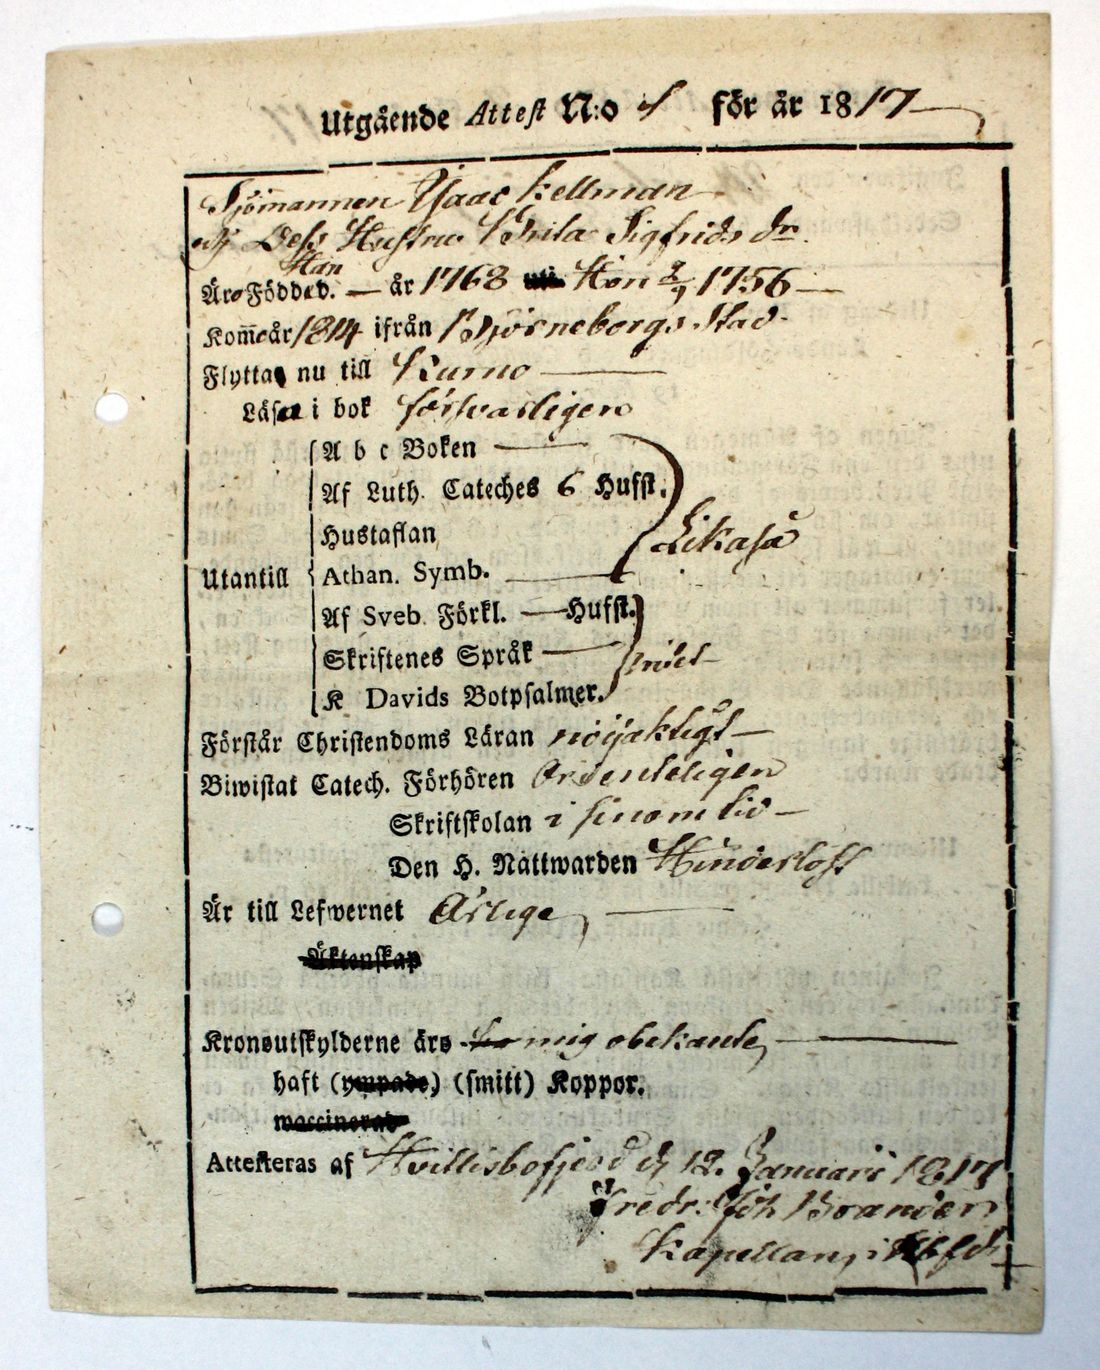 Utgående Attest N:o 4 för år 1817
Sjömannen Isaac Kellman
och Dess Hustru Brita Sigfrids dr.
Han
Äro Födde d. — år 1768 Hon 1756
Kom̅e år 1814 ifrån Björneborgs Stad
Flytta nu till Kumo
Läsa i bok försvarligen
A b c Boken
Af Luth. Cateches 6 Hufst.
Hustaflan
Likaså
Utantill Athan. Symb.
Af Sveb. Förkl. — Hufst.
Skriftenes Språk
intet
K Davids Botpsalmer.
Förstår Christendoms Läran nöijaktigt
Biwistat Catech. Förhören Ordenteligen
Skriftskolan i sinom tid
Den H. Nattwarden Hinderlöst
Är till Lefwernet Ärlige
Äktenskap
Kronoutskylderne äro mig obekante
haft (ympade) (smitt) Koppor.
waccinerad
Attesteras af Hvittisbofjerd d. 12. Januari 1817
Fredr: Joh Brander
Kapellan i